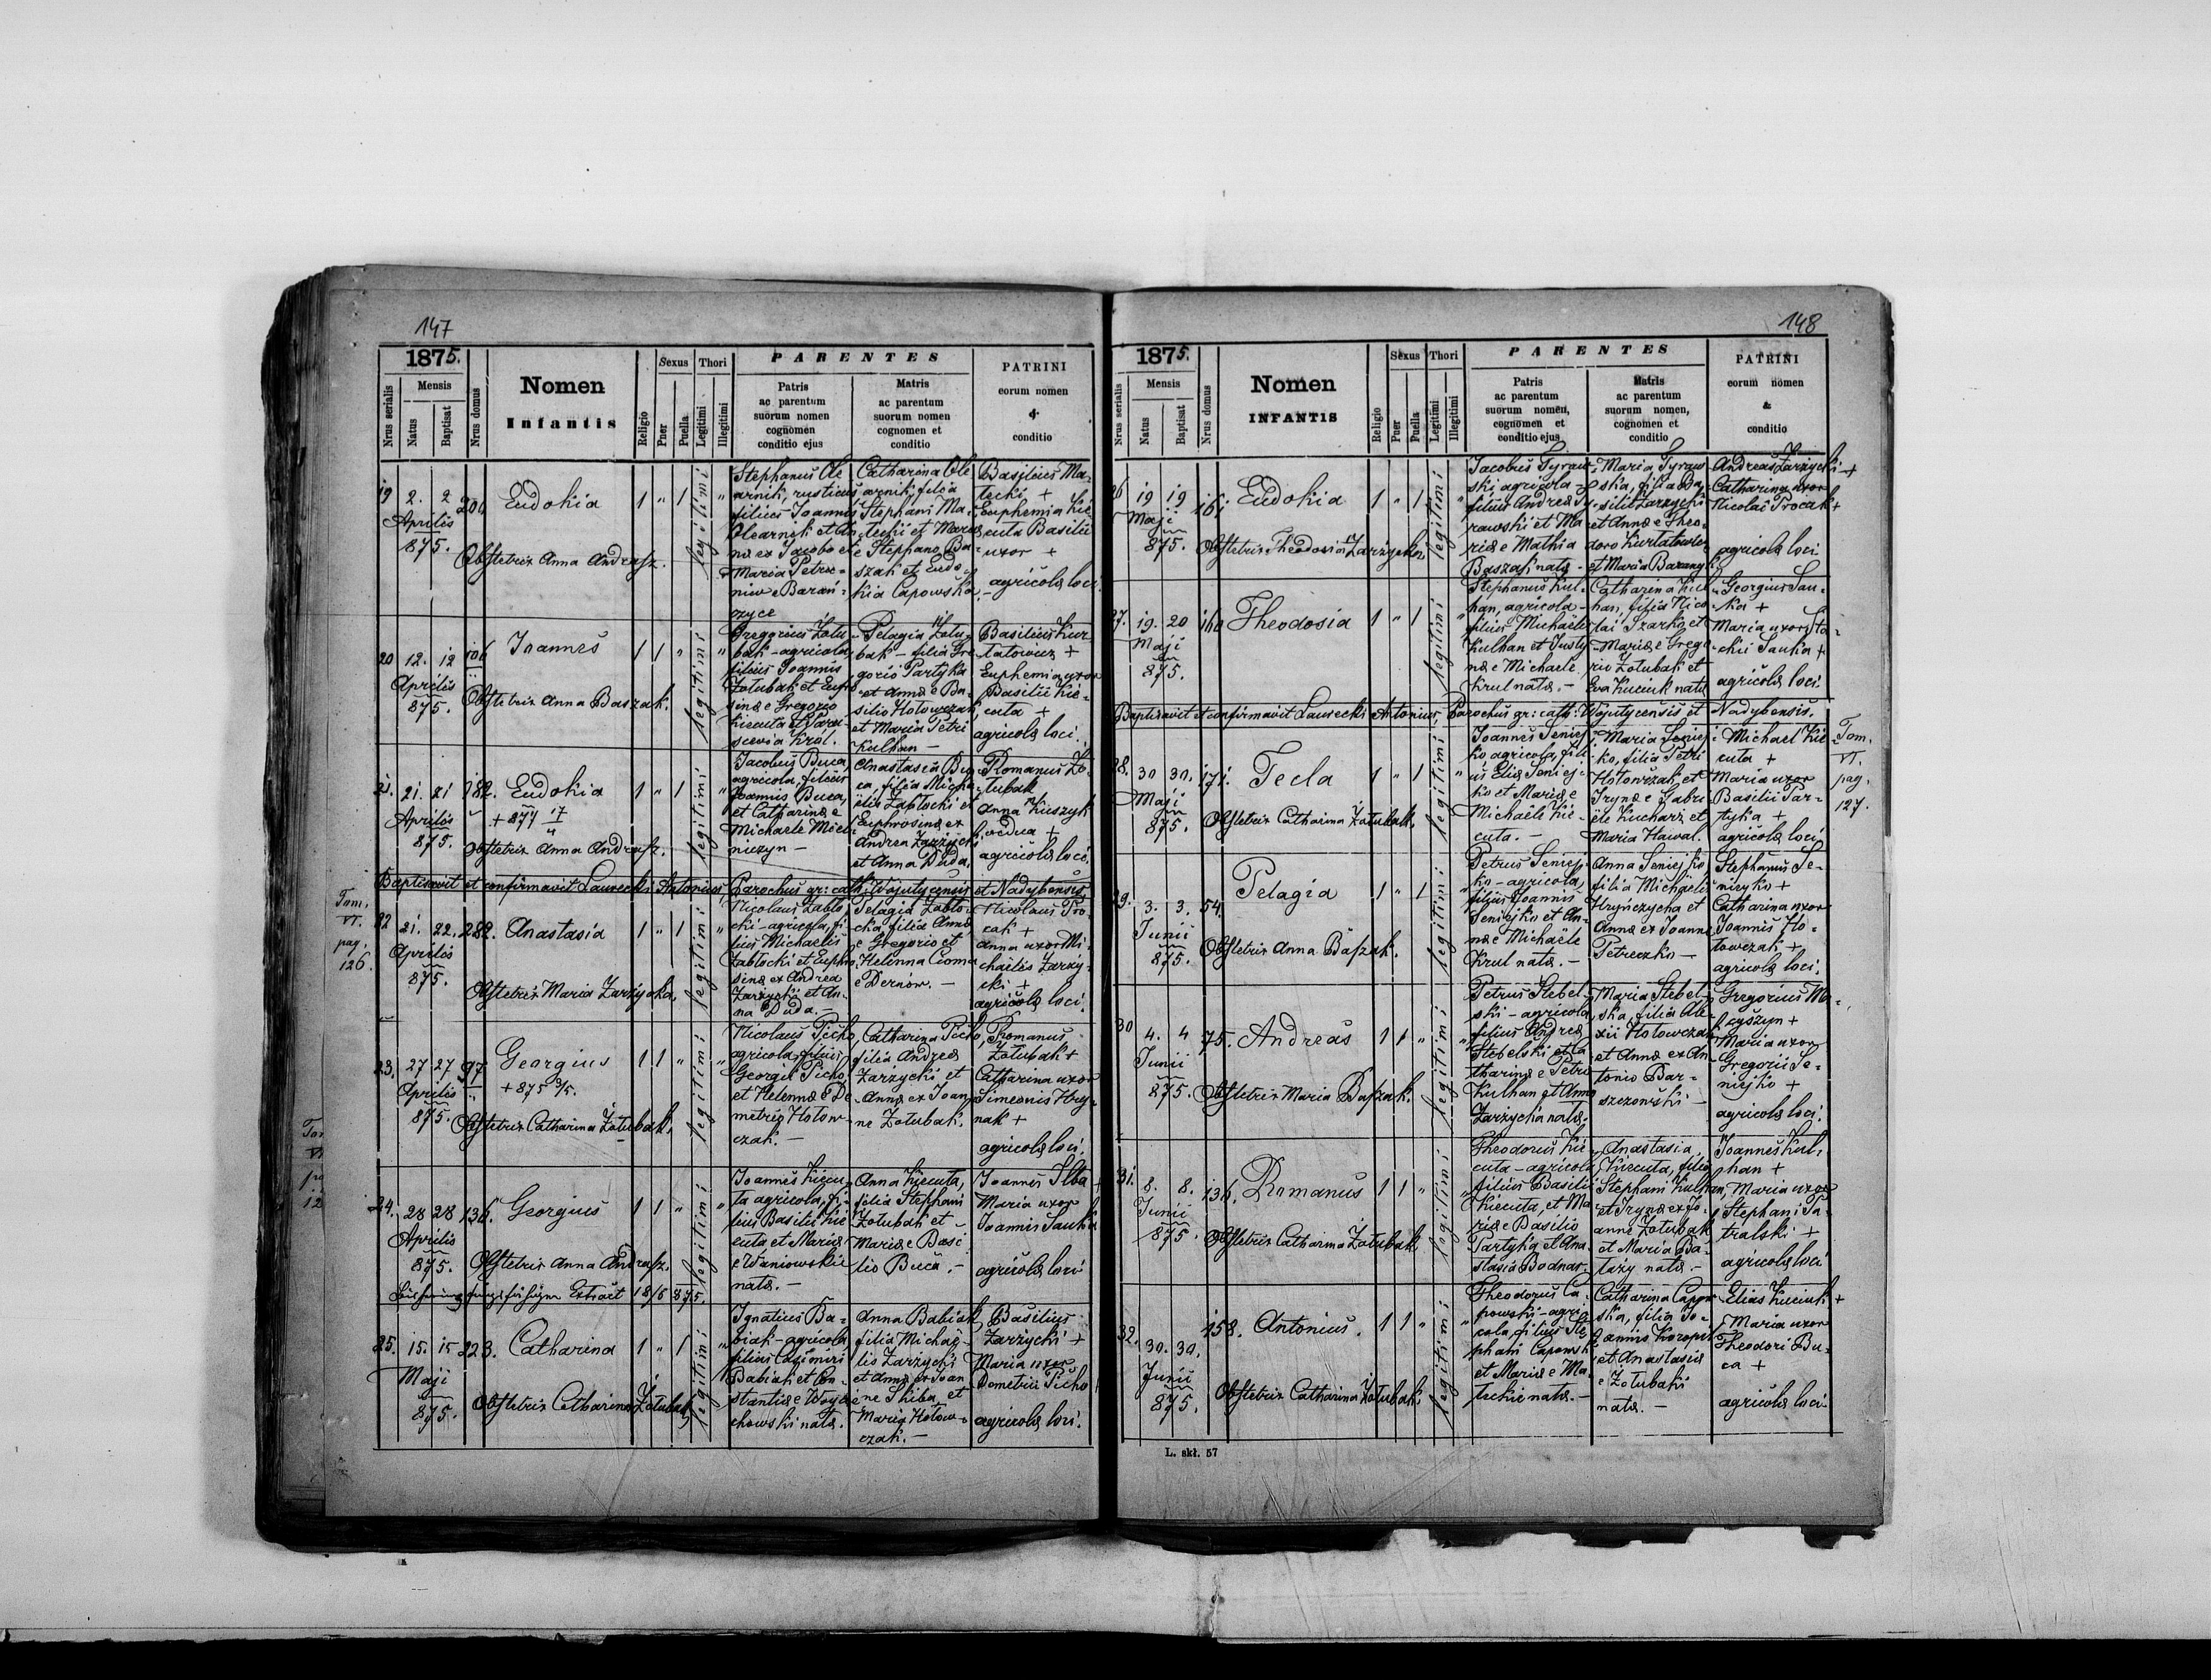 147
1875.
Nrus serialis
Mensis
Natus
Baptisat
Nrus domus
Nomen
Infantis
Religio
Sexus
Puer
Puella
Thori
Legitimi
Illegitimi
PARENTES
Patris
ac parentum
suorum nomen
cognomen
conditio ejus
Matris
ac parentum
suorum nomen
cognomen et
conditio
PATRINI
eorum nomen
&
conditio
19
2. 2
Aprilis
875.
Eudokia
1 " 1
legitimi
Obstetrix Anna Andrasz.
Stephanus Ole
arnik, rusticus
filius Joannis
Olearnik et An
na ex Jacobo et
Maria Petre-
niew e Barań-
czyce
Catharina Ole
arnik, filia
Stephani Ma-
tecki et Maria
e Stephano Ba-
szak et Eudo-
kia Capowska
Basilius Ma-
tecki +
Euphemia Kie
cuta Basilii
uxor +
agricolæ loci
20
12. 12
Aprilis
875.
106
Joannes
1 1 "
legitimi
Obstetrix Anna Baszak.
Gregorius Zołu
bak - agricola
filius Joannis
Zołubak et Euph
sina e Gregorio
Kiecuta et Para
scevia Król.
Pelagia Zołu
bak - filia Gre
gorio Partyka
et Anna e Ba-
silio Hołowczak
et Maria Petri
Kulhan -
Basilius Kur
tatowicz +
Euphemia uxor
Basilii Kie-
cuta +
agricolæ loci.
21.
21. 21
Aprilis
875.
182.
Eudokia
+ 877 17/4
1 " 1
legitimi
Obstetrix Anna Andrasz.
Jacobus Buca,
agricola, filius
Joannis Buca,
et Catharina e
Michaele Miel-
niczyn -
Anastasia Bu
ca, filia Micha
elis Zabłocki et
Euphrosina ex
Andrea Zarzycki
et Anna Duda,
Romanus Zo-
łubak
Anna Kuszyk
vedua +
agricolæ loci.
Baptisavit et confirmavit Laurecki Antonius, Parochus gr: cath: Wojutycensis et Nadybensis
Tom.
VI.
pag.
126.
22
21. 22.
Aprilis
875.
282.
Anastasia
1 " 1
legitimi
Obstetrix Maria Zarzycka.
Nicolaus Zabło
cki - agricola, fi-
lius Michaelis
Zabłocki et Euphro
sina ex Andrea
Zarzycki et An-
na Duda.
Pelagia Zabło-
cka, filia Anna
e Gregorio et
Helenna Cioma
e Dernow. -
Nicolaus Pro-
cak +
Anna uxor Mi-
chaelis Zarzy-
cki +
agricolæ loci.
23.
27 27
Aprilis
875.
97
Georgius
+ 875 9/5.
1 1 "
legitimi
Obstetrix Catharina Zołubak.
Nicolaus Picho,
agricola, filius
Georgii Picho,
et Helenna e De
metrio Hołow-
czak. -
Catharina Picho,
filia Andrea
Zarzycki et
Anna ex Joan
ne Zołubak.
Romanus
Zołubak +
Catharina uxor
Simeonis Hry-
nak +
agricolæ loci.
24.
28 28
Aprilis
875.
136.
Georgius
1 1 "
legitimi
Obstetrix Anna Andrasz.
Joannes Kiecu
ta agricola, fi-
lius Basilii Kie
cuta et Maria
e Waniowskie
nata. -
Anna Kiecuta,
filia Stephani
Zołubak et -
Maria e Basi
lio Buca. -
Joannes Slba +
Maria uxor
Joannis Sauka
agricolæ loci
Extract 18/6 875.
25.
15. 15
Maji
875.
223.
Catharina
1 " 1
legitimi
Obstetrix Catharina Zołubak
Ignatius Ba-
biak - agricola
filius Casimiri
Babiak et Con-
stantia e Woyci
chowski nata.
Anna Babiak
filia Michae-
lis Zarzycki
et Anna ex Joan
ne Skiba et
Maria Hołow-
czak. -
Basilius
Zarzycki +
Maria uxor
Demetrii Picho
agricolæ loci.
148
1875.
Nrus serialis
Mensis
Natus
Baptisat
Nrus domus
Nomen
INFANTIS
Religio
Sexus
Puer
Puella
Thori
Legitimi
Illegitimi
PARENTES
Patris
ac parentum
suorum nomen,
cognomen et
conditio ejus
Matris
ac parentum
suorum nomen,
cognomen et
conditio
PATRINI
eorum nomen
&
conditio
26
19 19
Maji
875.
161
Eudokia
1 " 1
legitimi
Obstetrix Theodosia Zarzycka
Jacobus Tyraw-
ski agricola -
filius Andrea Ty-
rawski et Ma
ria e Mathia
Baszak nata -
Maria Tyraw
ska, filia Ba-
silii Zarzycki
et Anna e Theo-
doro Kurtatowicz
et Maria Barany
Andreas Zarzycki +
Catharina uxor
Nicolai Procak +
agricolæ loci
27.
19. 20
Maji
875.
160
Theodosia
1 " 1
legitimi
Stephanus Kul-
han, agricola -
filius Michaelis
Kulhan et Justy
na e Michaele
Krul nata. -
Catharina Kul
han, filia Nico
lai Szarko et
Maria e Grego
rio Zołubak et
Eva Kuciuk nata
Georgius Sau-
ka +
Maria uxor Sta-
chii Sauka +
agricolæ loci
Baptisavit et confirmavit Laurecki Antonius, Parochus gr: cath: Wojutycensis et Nadybensis.
28.
30 30.
Maji
875.
171.
Tecla
1 " 1
legitimi
Obstetrix Catharina Zołubak.
Joannes Seniej
ko agricola, fili
us Elia Seniej-
ko et Maria e
Michaele Kie-
cuta. -
Maria Seniej
ko, filia Petri
Hołowczak et
Iryna e Gabri
ele Kucharz et
Maria Hawal.
Michael Kie
cuta +
Maria uxor
Basilii Par-
tyka +
agricolæ loci
Tom.
VI.
pag.
127.
29.
3. 3.
Junii
875.
54.
Pelagia
1 " 1
legitimi
Obstetrix Anna Baszak.
Petrus Seniej-
ko - agricola
filius Joannis
Seniejko et An-
na e Michaele
Krul nata. -
Anna Seniejko
filia Michaelis
Hryńczycha et
Anna ex Joanne
Petreczko -
Stephanus Se-
niejko +
Catharina uxor
Joannis Ho-
łowczak +
agricolæ loci.
30
4. 4
Junii
875.
75.
Andreas
1 1 "
legitimi
Obstetrix Maria Baszak.
Petrus Stebel-
ski - agricola
filius Andrea
Stebelski et Ca
tharina e Petro
Kulhan et Anna
Zarzycka nata.
Maria Stebel-
ska, filia Ale-
xii Hołowczak
et Anna ex An-
tonio Bar-
szczowski -
Gregorius Ma-
cyszyn +
Maria uxor
Gregorii Se-
niejko +
agricolæ loci.
31.
8. 8.
Junii
875.
136.
Romanus
1 1 "
legitimi
Obstetrix Catharina Zołubak
Theodorus Kie
cuta - agricola
filius Basilii
Kiecuta, et Ma
ria e Basilio
Partyka et Ana
stasia Bodnar.
Anastasia
Kiecuta, filia
Stephani Kulhan,
et Iryna ex Jo-
anne Zołubak
et Maria Ba-
łazy nata. -
Joannes Kul-
han +
Maria uxor
Stephani Ta-
tralski +
agricolæ loci
32.
30. 30.
Junii
875.
158.
Antonius.
1 1 "
legitimi
Obstetrix Catharina Zołubak.
Theodorus Ca-
powski - agri-
cola, filius Ste
phani Capowski
et Maria e Ma
teckie nata. -
Catharina Capow
ska, filia Jo-
annis Koropis
et Anastasia
e Zołubaki
nata. -
Elias Kuciuk +
Maria uxor
Theodori Bu-
ca +
agricolæ loci.
L. skł. 57